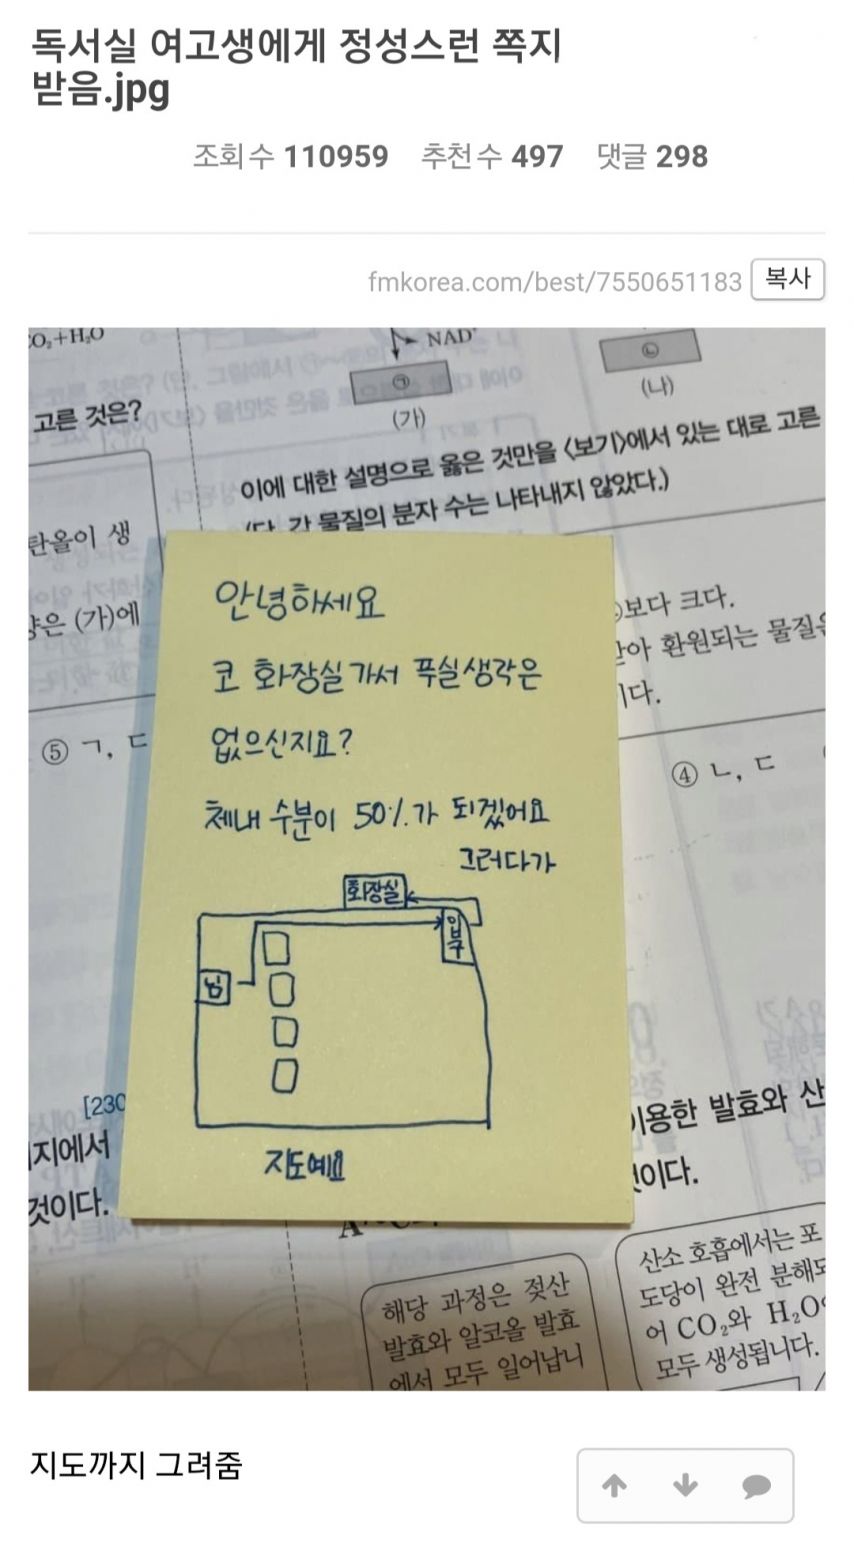 독서실 여고생에게 정성스런 쪽지
받음.jpg
조회수 110959 추천수 497 댓글 298
fmkorea.com/best/7550651183 복사
O₂+H₂O
NAD⁺
㉠
㉡
(가)
(나)
고른 것은?
이에 대한 설명으로 옳은 것만을 〈보기〉에서 있는 대로 고른
(단, 각 물질의 분자 수는 나타내지 않았다.)
탄올이 생
양은 (가)에
보다 크다.
받아 환원되는 물질은
이다.
⑤ ㄱ, ㄷ
④ ㄴ, ㄷ
안녕하세요
코 화장실가서 푸실생각은
없으신지요?
체내 수분이 50%가 되겠어요
그러다가
화장실
입구
님
지도예요
[230
지에서
것이다.
이용한 발효와 산
것이다.
해당 과정은 젖산
발효와 알코올 발효
에서 모두 일어납니
산소 호흡에서는 포
도당이 완전 분해되
어 CO₂와 H₂O
모두 생성됩니다.
지도까지 그려줌